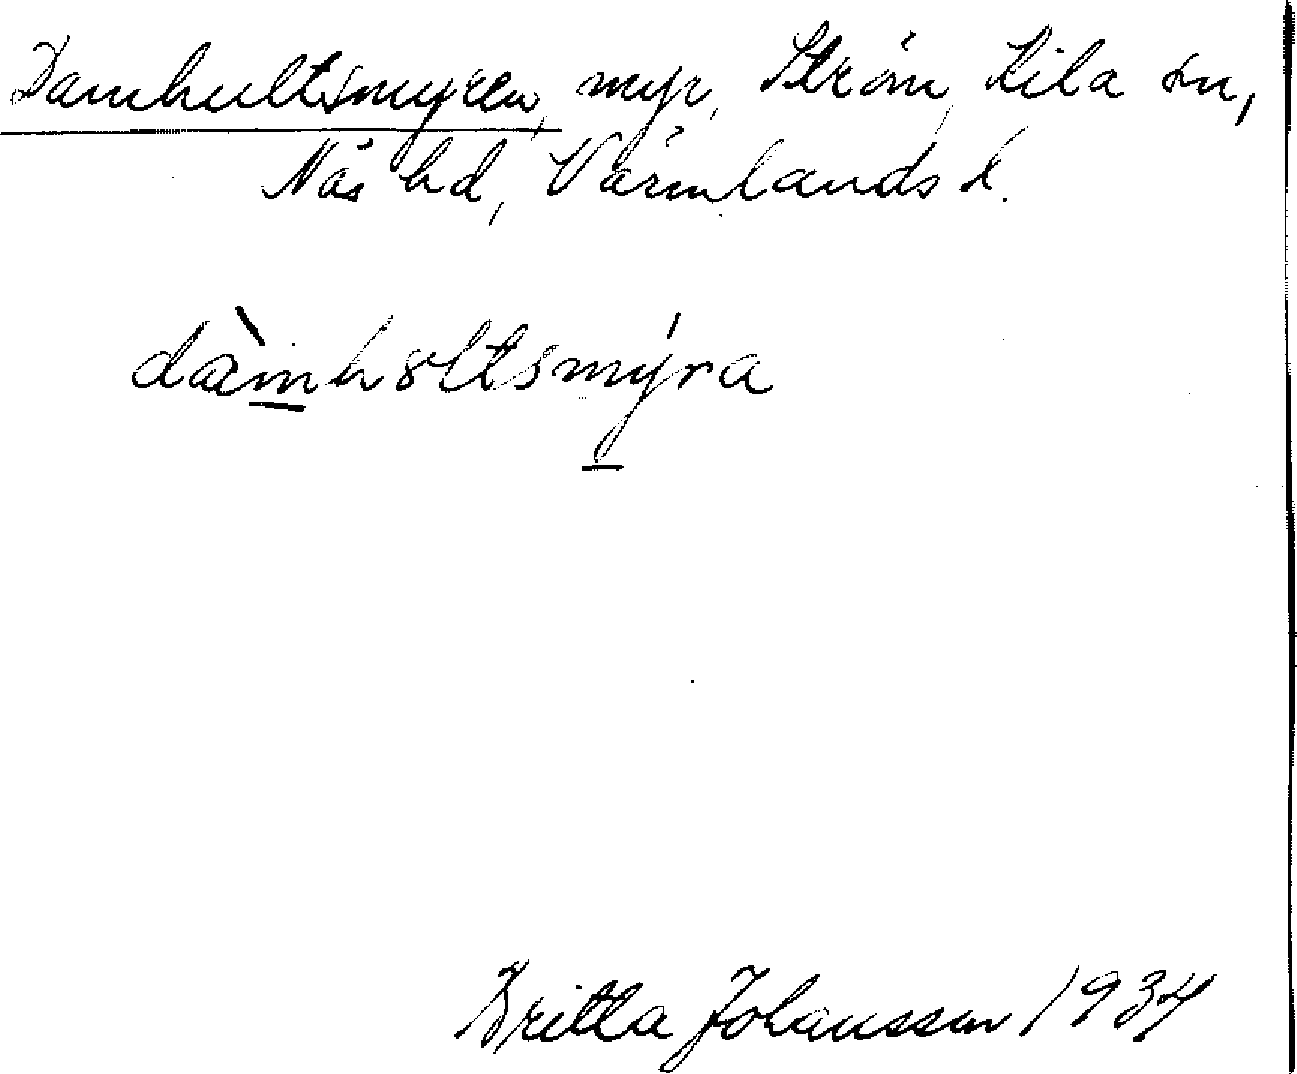 Damhultsmyren, myr, Ström, Kila sn,
Näs hd, Värmlands l.
dàmholtsmýra
Britta Johansson 1934